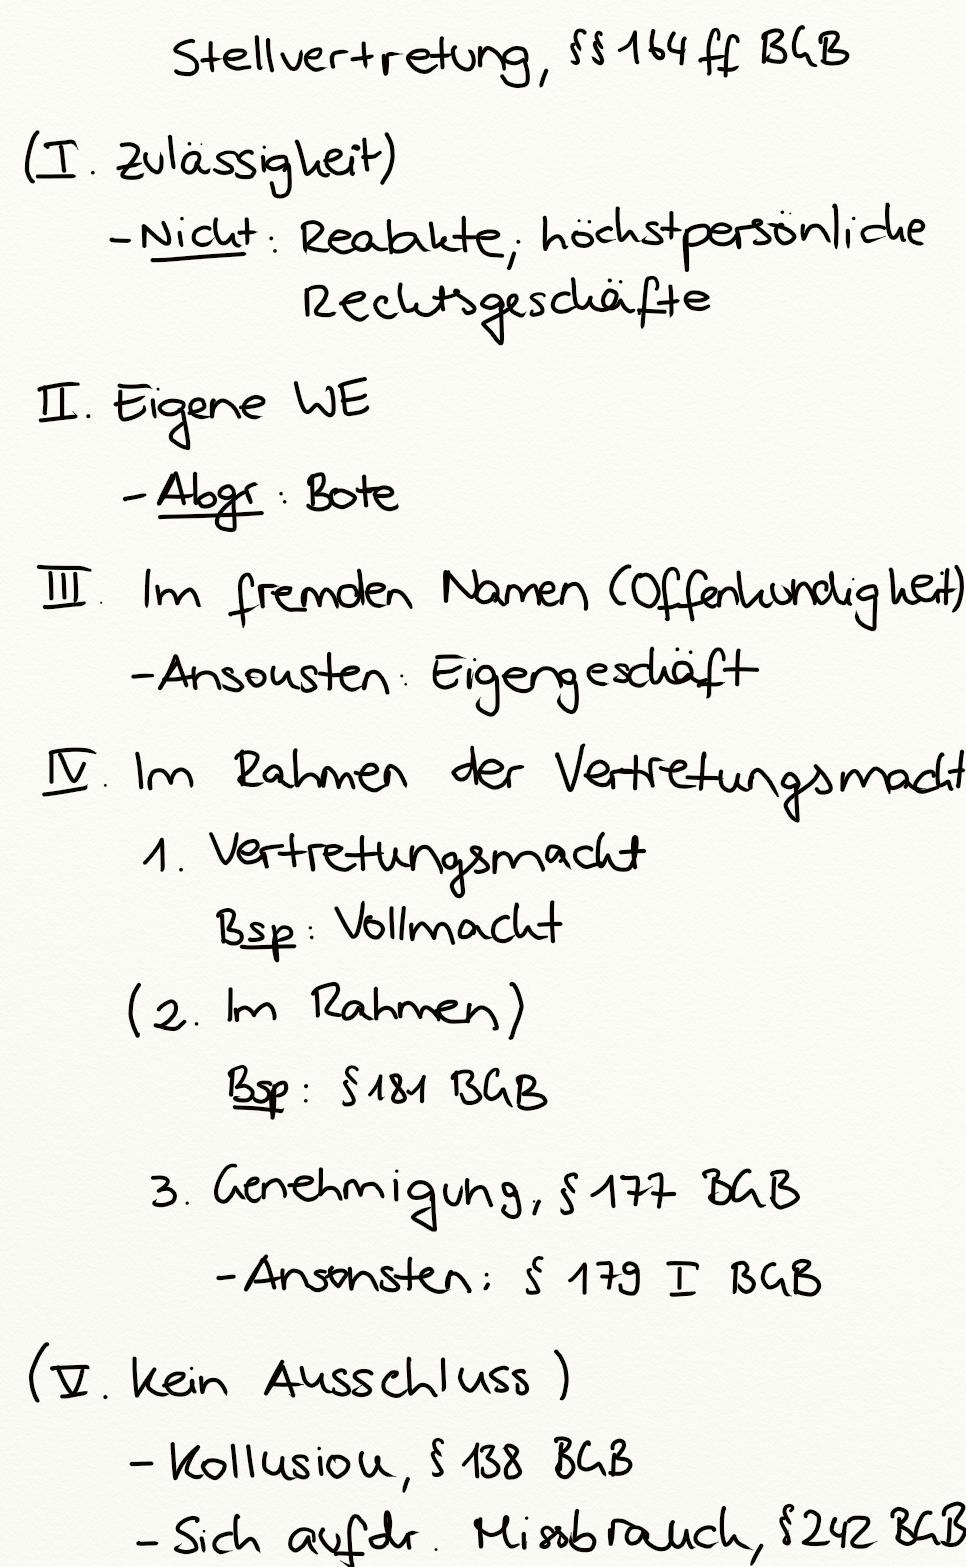 Stellvertretung, §§ 164 ff BGB
(I. Zulässigkeit)
- Nicht: Realakte, höchstpersönliche
Rechtsgeschäfte
II. Eigene WE
- Abgr: Bote
III. Im fremden Namen (Offenkundigkeit)
- Ansonsten: Eigengeschäft
IV. Im Rahmen der Vertretungsmacht
1. Vertretungsmacht
Bsp: Vollmacht
(2. Im Rahmen)
Bsp: § 181 BGB
3. Genehmigung, § 177 BGB
- Ansonsten: § 179 I BGB
(V. Kein Ausschluss)
- Kollusion, § 138 BGB
- Sich aufdr. Missbrauch, § 242 BGB